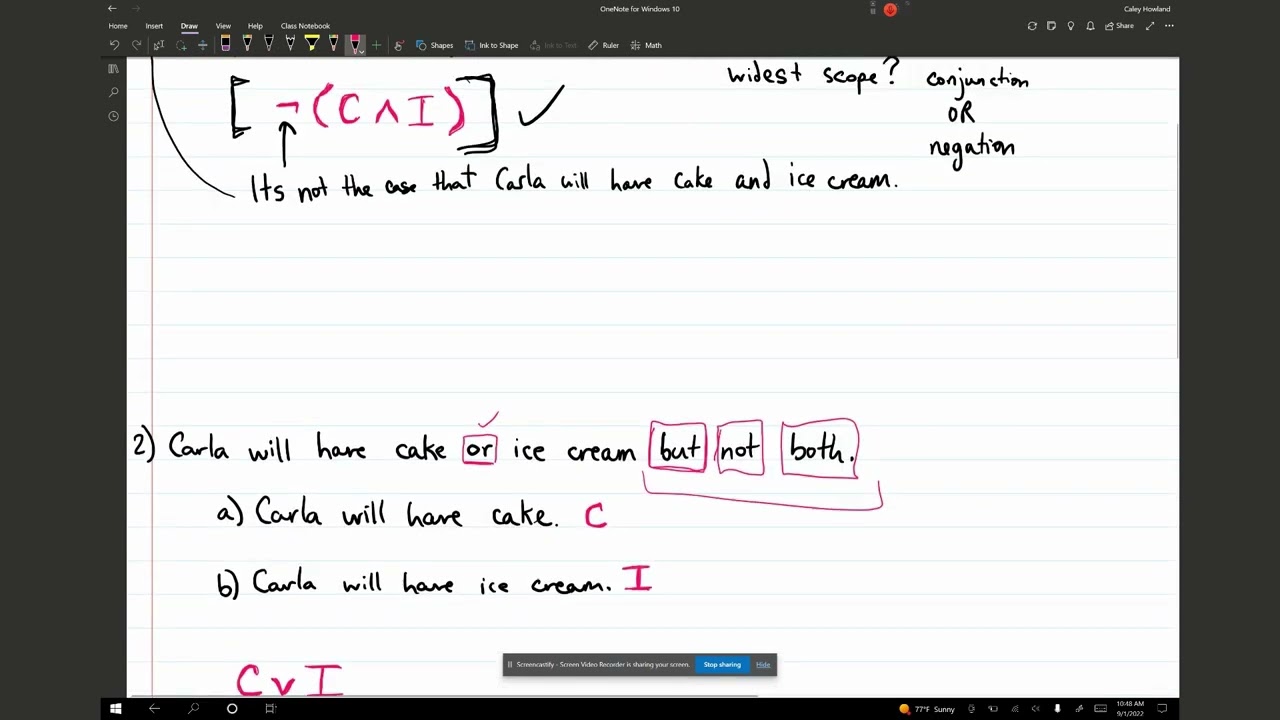 OneNote for Windows 10
Caley Howland
Home Insert Draw View Help Class Notebook
Share
Shapes Ink to Shape Ink to Text Ruler Math
widest scope? conjunction
[¬(C∧I)] ✓
OR
negation
Its not the case that Carla will have cake and ice cream.
2) Carla will have cake or ice cream but not both.
a) Carla will have cake. C
b) Carla will have ice cream. I
Screencastify - Screen Video Recorder is sharing your screen. Stop sharing Hide
C v I
77°F Sunny
10:48 AM
9/1/2022